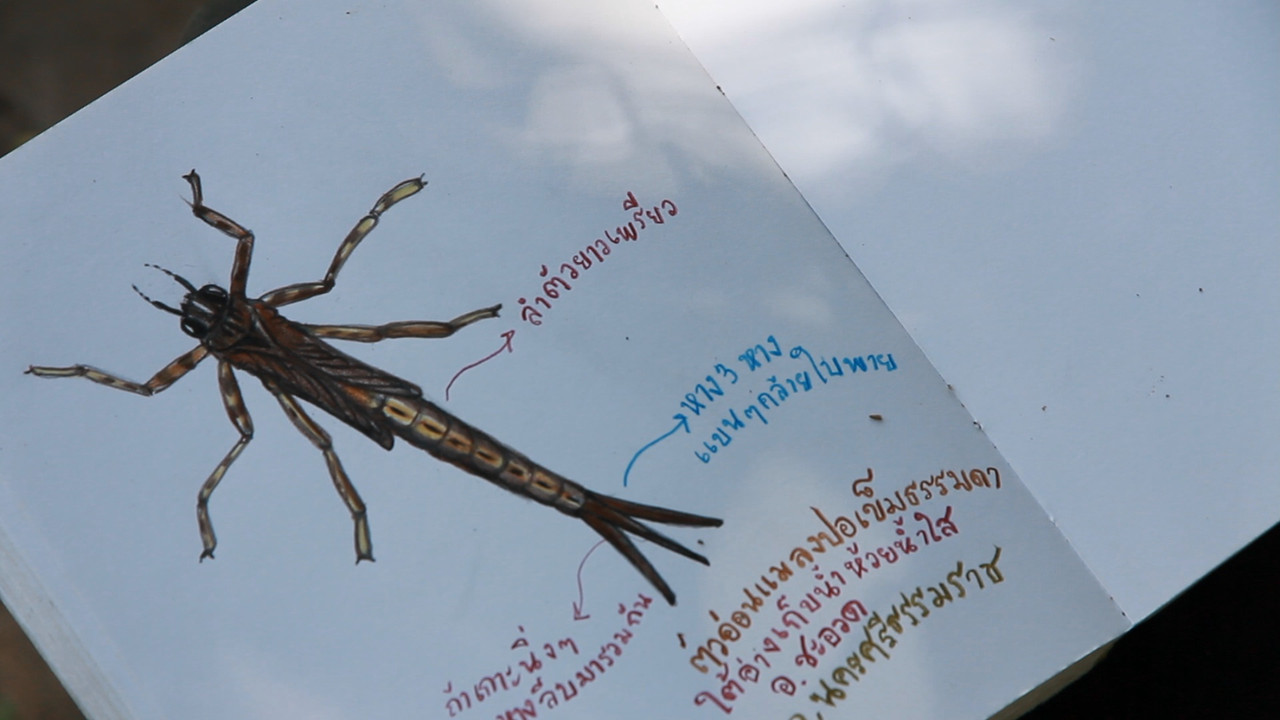 ลำตัวยาวเพรียว
หาง 3 หาง
แบนๆคล้ายใบพาย
ถ้าเกาะนิ่งๆ
หางลีบมารวมกัน
ตัวอ่อนแมลงปอเข็มธรรมดา
ใต้อ่างเก็บน้ำห้วยน้ำใส
อ.ชะอวด
จ.นครศรีธรรมราช